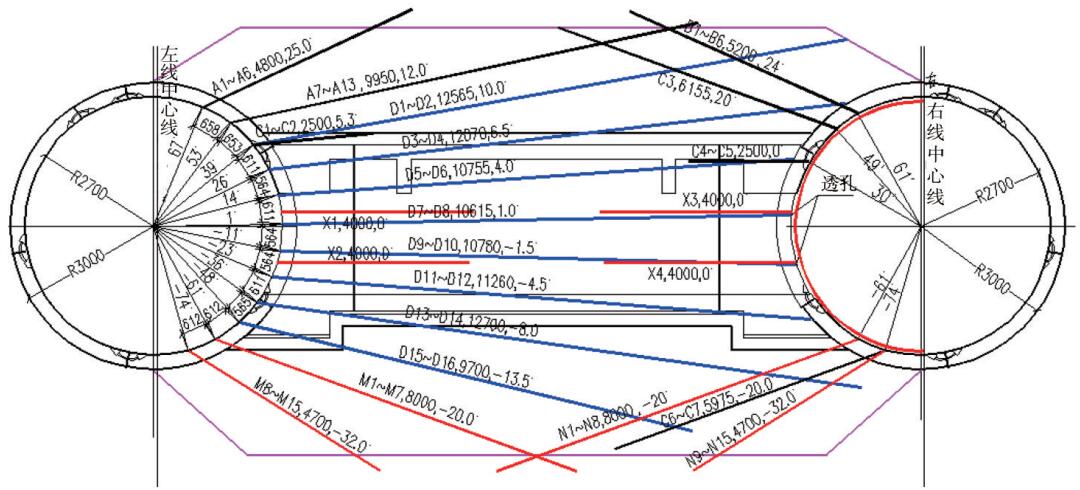 左线中心线
A1~A6,4800,25.0°
A7~A13,9950,12.0°
D1~D2,12565,10.0°
C1~C2,2500,5.3°
D3~D4,12070,6.5°
D5~D6,10755,4.0°
D7~D8,10615,1.0°
X1,4000,0°
D9~D10,10780,-1.5°
X2,4000,0°
D11~D12,11260,-4.5°
D13~D14,12700,-8.0°
D15~D16,9700,-13.5°
M1~M7,8000,-20.0°
M8~M15,4700,-32.0°
B1~B6,5200,24°
C3,6155,20°
C4~C5,2500,0°
透孔
X3,4000,0°
X4,4000,0°
N1~N8,8000,-20°
C6~C7,5975,-20.0°
N9~N15,4700,-32.0°
右线中心线
R2700
R3000
R2700
R3000
658
653
611
564
611
564
564
611
585
612
612
67°
26°
14°
1°
-11°
-23°
-61°
-74°
49°
61°
30°
-61°
-74°